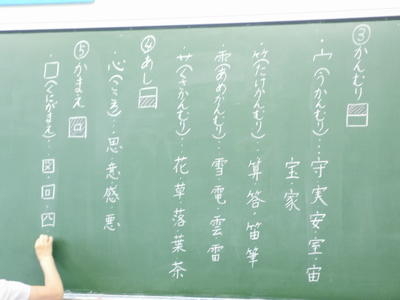 ③かんむり
・宀(うかんむり)…守・実・安・室・宙
宝・家
・竹(たけかんむり)…算・答・笛・筆
・雨(あめかんむり)…雪・電・雲・雷
・艹(くさかんむり)…花・草・落・葉・茶
④あし
・心(こころ)…思・意・感・悪
⑤かまえ
・囗(くにがまえ)…図・回・四